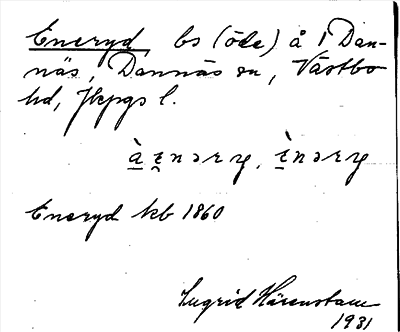 Eneryd, bs (öde) å 1 Dan-
näs, Dannäs sn, Västbo
hd, Jkpgs l.
Eneryd kb 1860
Ingrid Härenstam
1931